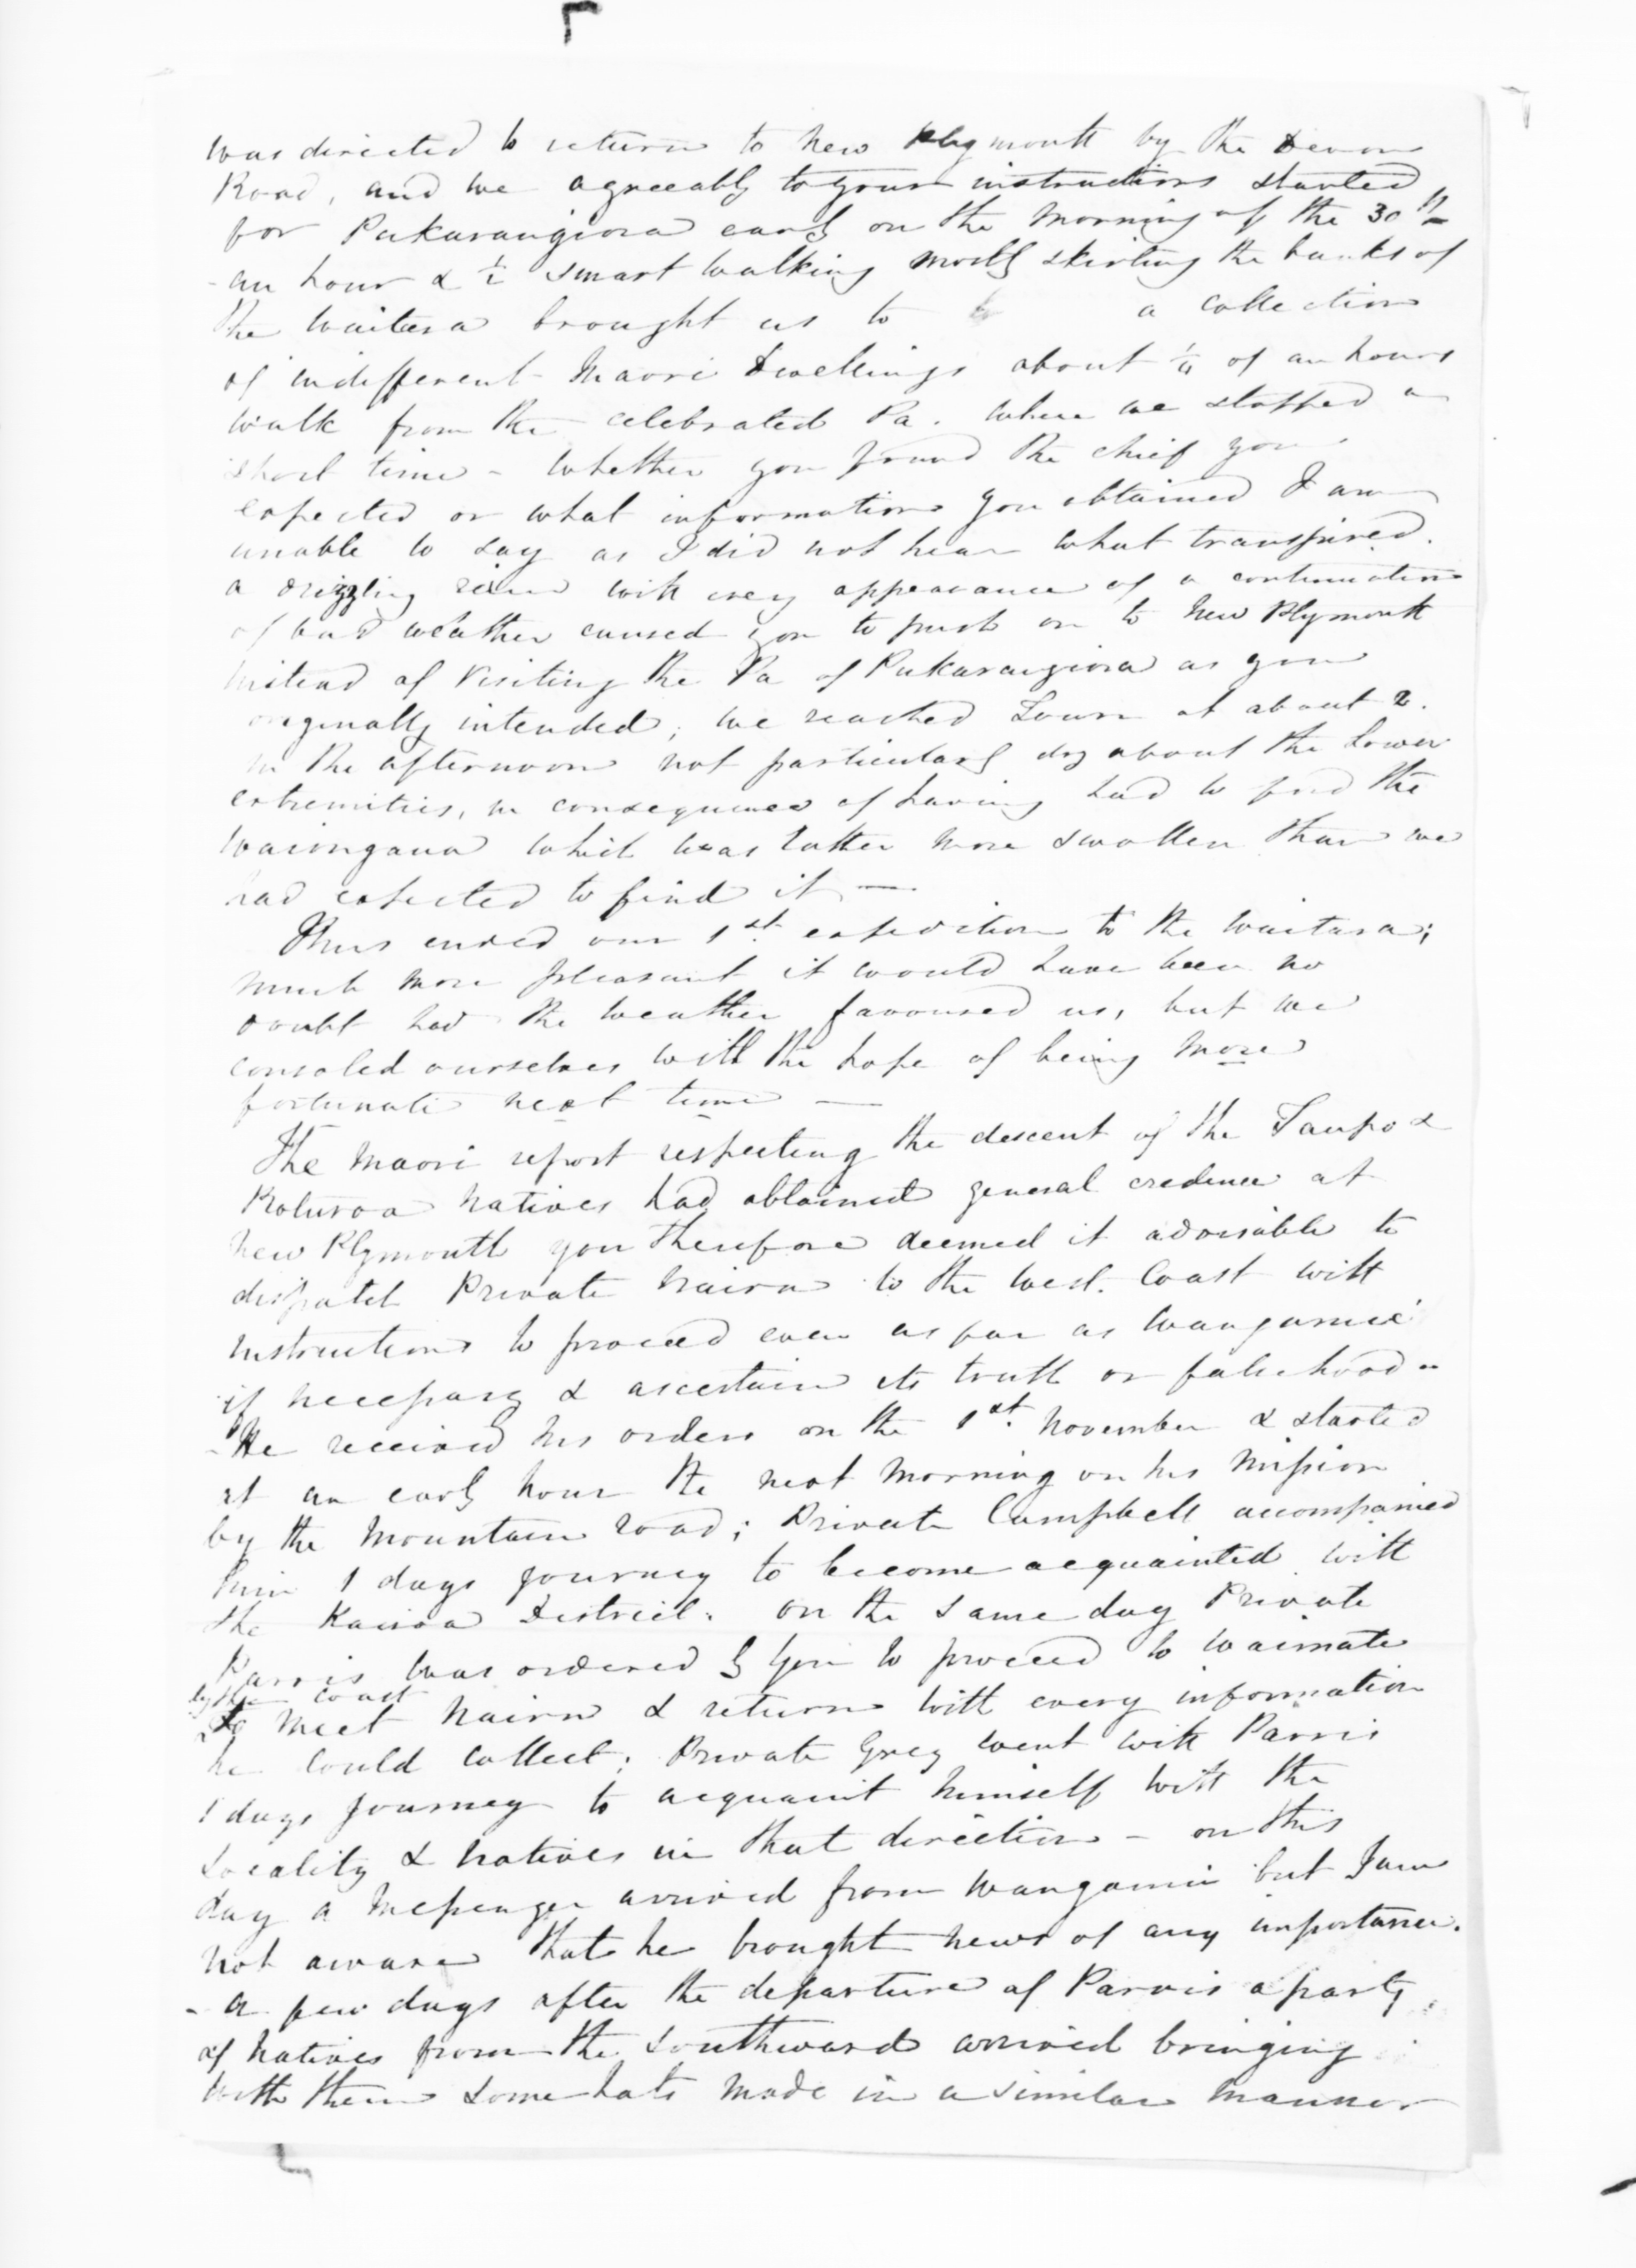 was directed to return to New Plymouth by the Devon
Road, and we agreeably to your instructions started
for Pukarangiora early on the Morning of the 30th
- an hour & ½ smart walking mostly skirting the banks of
the Waitara brought us to a collection
of indifferent Maori Dwellings about ¼ of an hours
walk from the celebrated Pa. where we stopped a
short time - whether you found the chief you
expected or what information you obtained I am
unable to say as I did not hear what transpired.
a drizzling rain with every appearance of a continuation
of bad weather caused you to push on to New Plymouth
instead of visiting the Pa of Pukarangiora as you
originally intended, we reached Town at about 2.
in the afternoon not particularly dry about the lower
extremities, in consequence of having had to ford the
Waiongana which was rather more swollen than we
had expected to find it —
Thus ended our 1st. expedition to the Waitara;
much more pleasant it would have been no
doubt had the weather favoured us, but we
consoled ourselves with the hope of being more
fortunate next time —
The Maori report respecting the descent of the Taupo &
Roturoa Natives had obtained general credence at
New Plymouth you therefore deemed it advisable to
dispatch Private Nairn to the West. Coast with
instructions to proceed even as far as Wanganui
if necessary & ascertain its truth or falsehood -
- He received his orders on the 1st. November & started
at an early hour the next Morning on his Mission
by the Mountain road; Private Campbell accompanied
him 1 days journey to become acquainted with
the Kairoa District. On the same day Private
Parris was ordered by you to proceed to Waimate
by the coast
to meet Nairn & return with every information
he could collect; Private Grey went with Parris
1 days journey to acquaint himself with the
locality & Natives in that direction - on this
day a Messenger arrived from Wanganui but I am
not aware that he brought news of any importance.
- a few days after the departure of Parris a party
of Natives from the Southward arrived bringing
with them some hats made in a similar manner